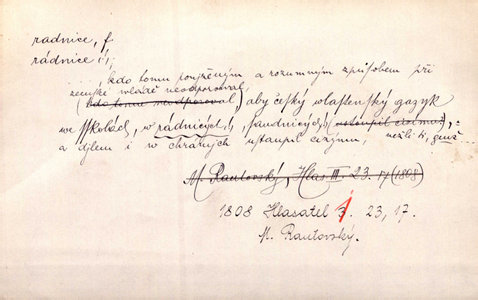 radnice, f.
rádnice i;
kdo tomu a rozumným způsobem při
zemské wládě neodporoval,
(kdo tomu neodporoval), aby český wlastenský gazyk
we školách, w rádnicých, saudnicých, (ustoupil cizému),
a djlem i w chrámých ustaupil cizýmu, nežli ti,
M. Rautovský, Hlas III. 23. 17 (1808)
1808 Hlasatel 3. 23, 17.
M. Rautovský.